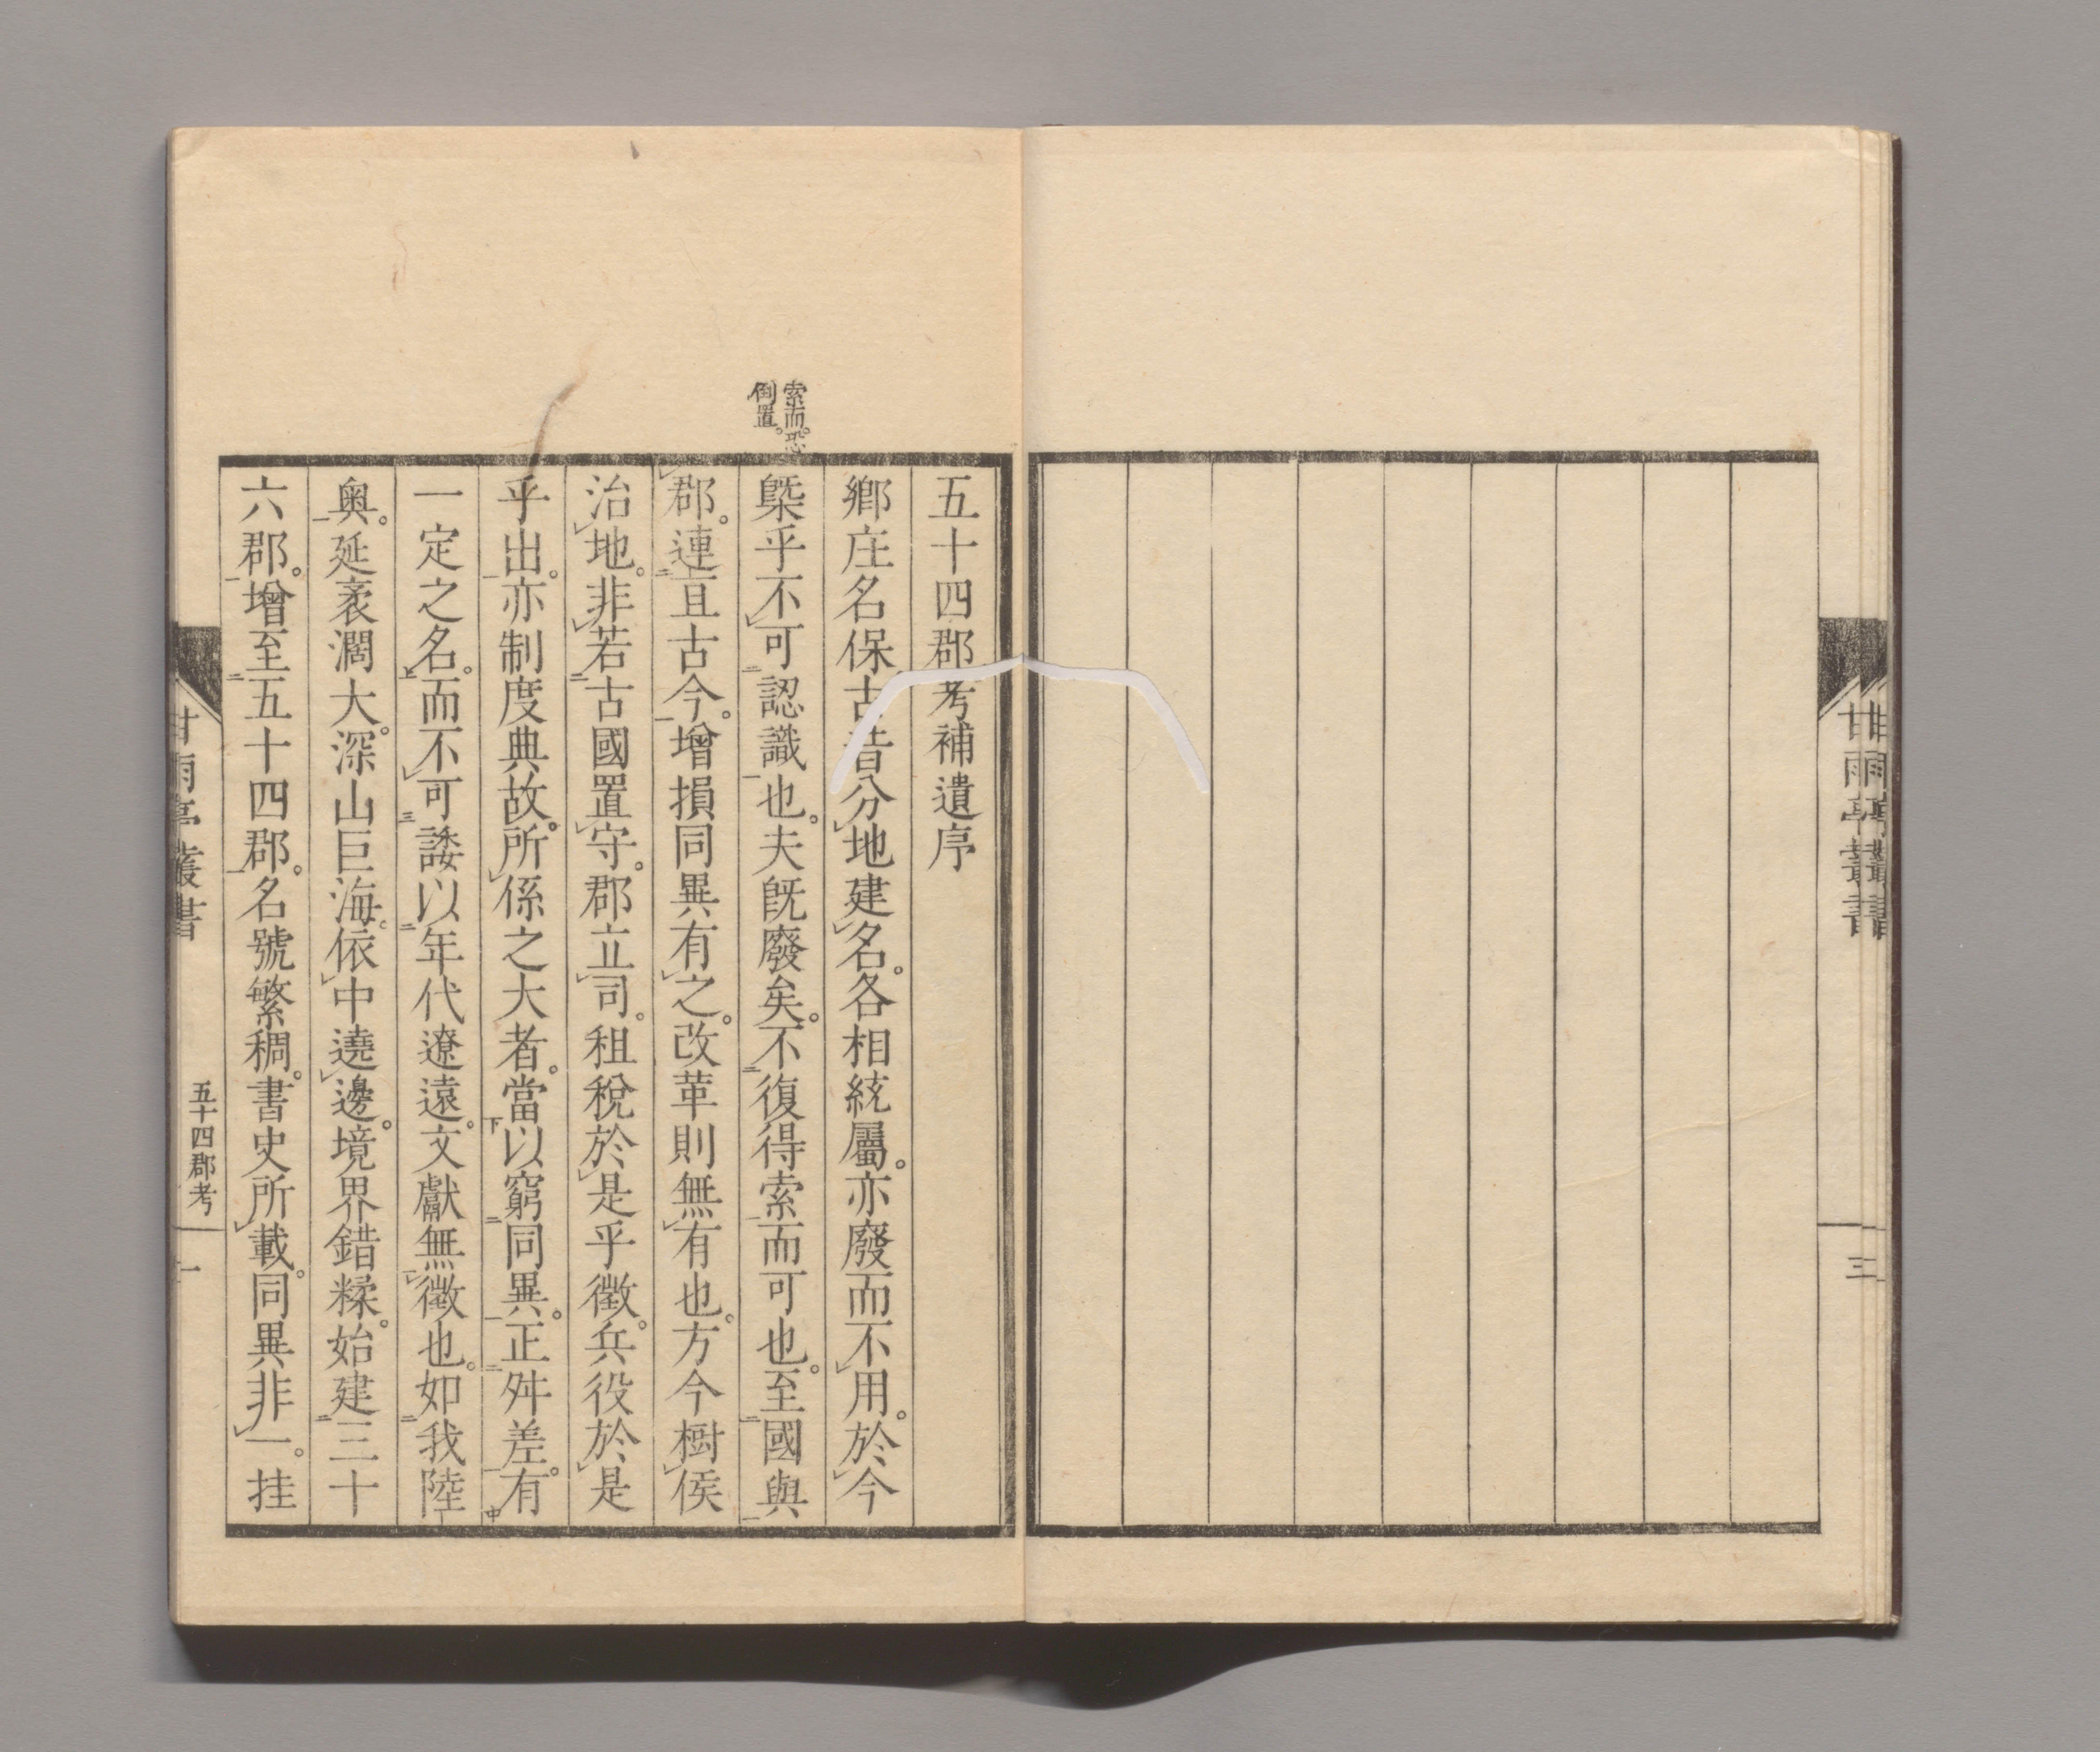 甘雨亭叢書
三
五十四郡考補遺序
鄕庄名保古昔分地建名。各相統屬。亦廢而不用。於今
槩乎不可認識也。夫旣廢矣。不復得索而可也。至國與
郡。連亘古今。增損同異有之。改革則無有也。方今樹侯
治地。非若古國置守。郡立司。租稅於是乎徵。兵役於是
乎出。亦制度典故。所係之大者。當以窮同異。正舛差。有
一定之名。而不可諉以年代遼遠。文獻無徵也。如我陸
奧。延袤濶大。深山巨海。依中遶邊。境界錯糅。始建三十
六郡。增至五十四郡。名號繁稠。書史所載。同異非一。挂
索而。恐
倒置。
甘雨亭叢書
五十四郡考
一